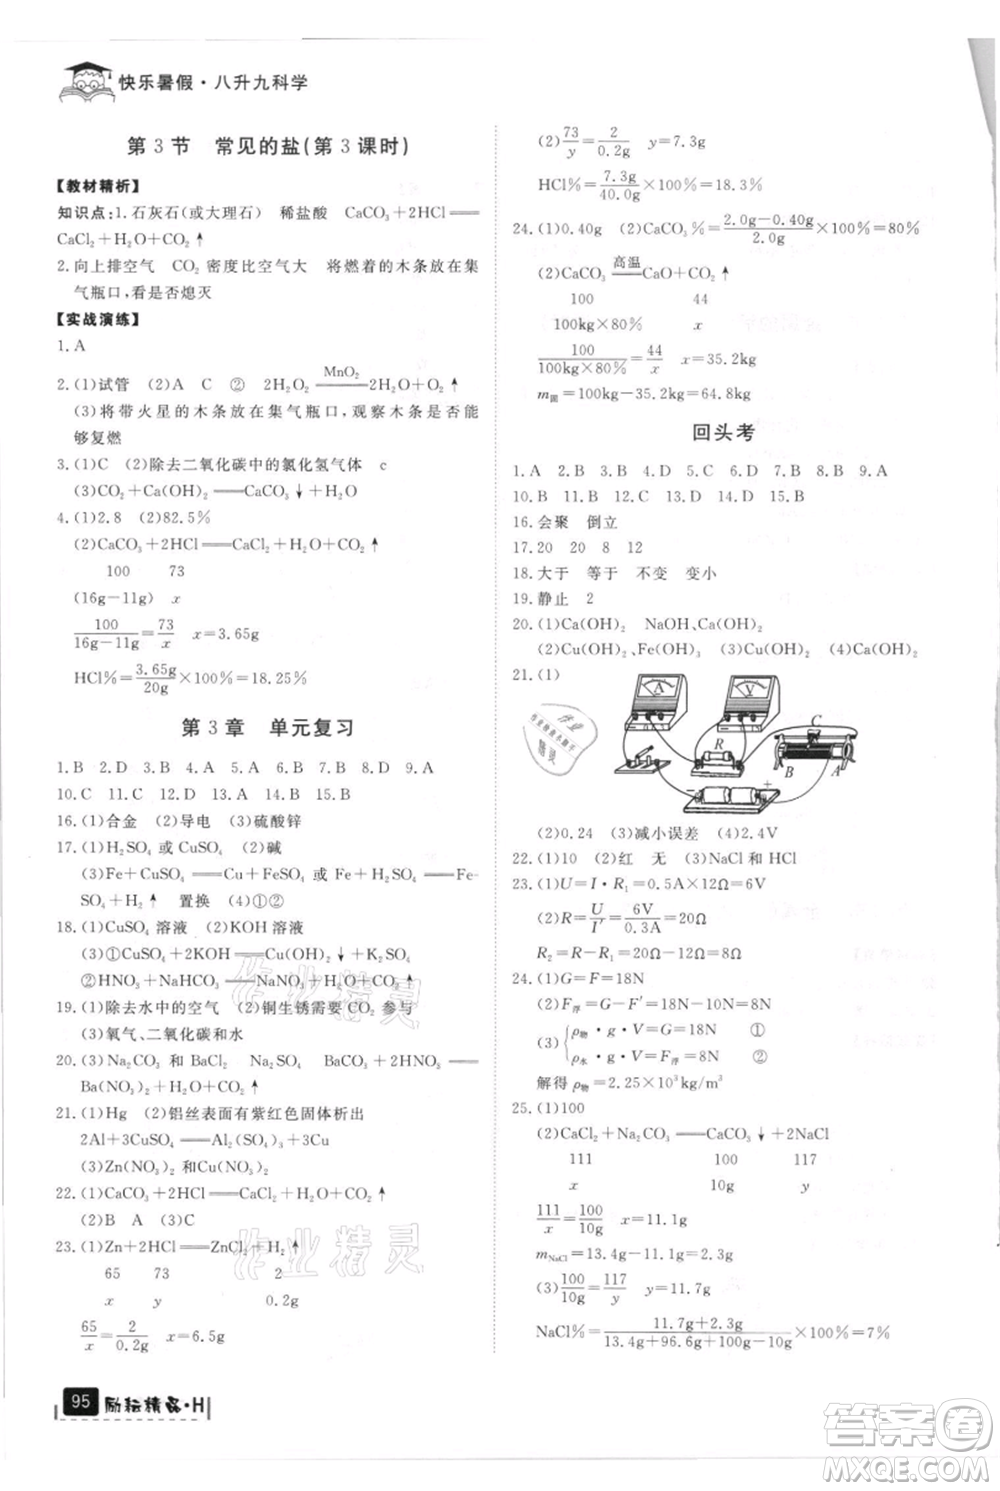 快乐暑假·八升九科学
第3节 常见的盐(第3课时)
【教材精析】
知识点:1.石灰石(或大理石) 稀盐酸 CaCO₃+2HCl══
CaCl₂+H₂O+CO₂↑
2.向上排空气 CO₂ 密度比空气大 将燃着的木条放在集
气瓶口,看是否熄灭
【实战演练】
1.A
2.(1)试管 (2)A C ② 2H₂O₂ MnO₂══ 2H₂O+O₂↑
(3)将带火星的木条放在集气瓶口,观察木条是否能
够复燃
3.(1)C (2)除去二氧化碳中的氯化氢气体 c
(3)CO₂+Ca(OH)₂══CaCO₃↓+H₂O
4.(1)2.8 (2)82.5%
(2)CaCO₃+2HCl══CaCl₂+H₂O+CO₂↑
100 73
(16g-11g) x
100/(16g-11g)=73/x x=3.65g
HCl%=3.65g/20g×100%=18.25%
第3章 单元复习
1.B 2.D 3.D 4.C 5.A 6.B 7.B 8.D 9.A
10.C 11.C 12.D 13.A 14.B 15.B
16.(1)合金 (2)导电 (3)硫酸锌
17.(1)H₂SO₄ 或 CuSO₄ (2)碱
(3)Fe+CuSO₄══Cu+FeSO₄ 或 Fe+H₂SO₄══Fe-
SO₄+H₂↑ 置换 (4)①②
18.(1)CuSO₄ 溶液 (2)KOH 溶液
(3)①CuSO₄+2KOH══Cu(OH)₂↓+K₂SO₄
②HNO₃+NaHCO₃══NaNO₃+H₂O+CO₂↑
19.(1)除去水中的空气 (2)铜生锈需要 CO₂ 参与
(3)氧气、二氧化碳和水
20.(3)Na₂CO₃ 和 BaCl₂ BaCO₃+2HNO₃══
Ba(NO₃)₂+H₂O+CO₂↑
21.(1)Hg (2)铝丝表面有紫红色固体析出
2Al+3CuSO₄══Al₂(SO₄)₃+3Cu
(3)Zn(NO₃)₂ 和Cu(NO₃)₂
22.(1)CaCO₃+2HCl══CaCl₂+H₂O+CO₂↑
(2)B A (3)C
23.(1)Zn+2HCl══ZnCl₂+H₂↑
65 73 2
x y 0.2g
65/x=2/0.2g x=6.5g
95 励耘精品·H
(2)73/y=2/0.2g y=7.3g
HCl%=7.3g/40.0g×100%=18.3%
24.(1)0.40g (2)CaCO₃%=(2.0g-0.40g)/2.0g×100%=80%
(2)CaCO₃ 高温══ CaO+CO₂↑
100 44
100kg×80% x
100/(100kg×80%)=44/x x=35.2kg
m固=100kg-35.2kg=64.8kg
回头考
1.A 2.B 3.B 4.D 5.C 6.D 7.B 8.B 9.A
10.B 11.B 12.B 13.D 14.D 15.B
16.会聚 倒立
17.20 20 8 12
18.大于 等于 不变 变小
19.静止 2
20.(1)Ca(OH)₂ NaOH、Ca(OH)₂
(2)Cu(OH)₂、Fe(OH)₃ (3)Cu(OH)₂ (4)Ca(OH)₂
21.(1)
A V
R C B A
- +
(2)0.24 (3)减小误差 (4)2.4V
22.(1)10 (2)红 无 (3)NaCl 和 HCl
23.(1)U=I·R₁=0.5A×12Ω=6V
(2)R=U/I′=6V/0.3A=20Ω
R₂=R-R₁=20Ω-12Ω=8Ω
24.(1)G=F=18N
(2)F浮=G-F′=18N-10N=8N
(3){ρ物·g·V=G=18N ①
ρ水·g·V=F浮=8N ②
解得 ρ物=2.25×10³kg/m³
25.(1)100
(2)CaCl₂+Na₂CO₃══CaCO₃↓+2NaCl
111 100 117
x 10g y
111/x=100/10g x=11.1g
mNaCl=13.4g-11.1g=2.3g
(3)100/10g=117/y y=11.7g
NaCl%=(11.7g+2.3g)/(13.4g+96.6g+100g-10g)×100%=7%
作业精灵
作业精灵
答案圈
MXQE.COM